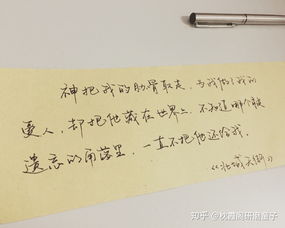 神把我的肋骨取走,为我做了我的
爱人,却把他藏在世界上,不知道哪个被
遗忘的角落里,一直不把他还给我。
《北城天街》
知乎